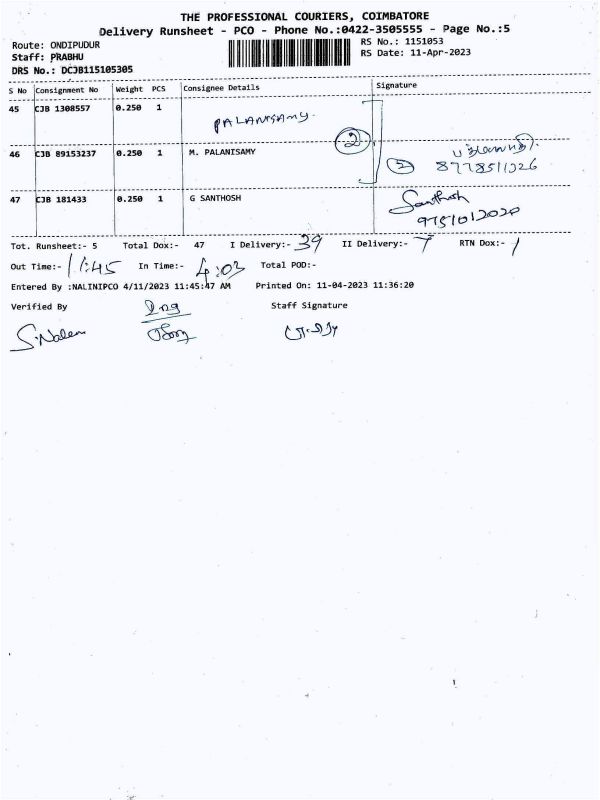 THE PROFESSIONAL COURIERS, COIMBATORE
Delivery Runsheet - PCO - Phone No.:0422-3505555 - Page No.:5
Route: ONDIPUDUR
RS No.: 1151053
Staff: PRABHU
RS Date: 11-Apr-2023
DRS No.: DCJB115105305
S No Consignment No Weight PCS Consignee Details Signature
45 CJB 1308557 0.250 1 PALANISAMY.
2
46 CJB 89153237 0.250 1 M. PALANISAMY
2 8778511226
47 CJB 181433 0.250 1 G SANTHOSH Santhosh
9751012020
Tot. Runsheet:- 5 Total Dox:- 47 I Delivery:- 39 II Delivery:- 7 RTN Dox:- 1
Out Time:- 11:45 In Time:- 4:03 Total POD:-
Entered By :NALINIPCO 4/11/2023 11:45:47 AM Printed On: 11-04-2023 11:36:20
Verified By Staff Signature